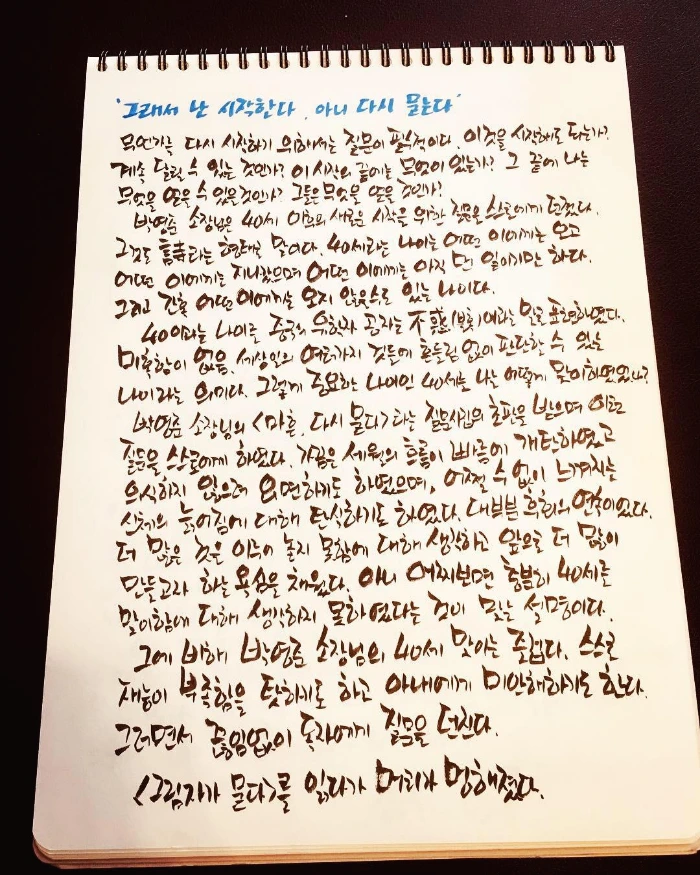 '그래서 난 시작한다, 아니 다시 묻는다'
무언가를 다시 시작하기 위해서는 질문이 필수적이다. 이것을 시작해도 되는가?
계속 달릴 수 있는 것인가? 이 시작의 끝에는 무엇이 있는가? 그 끝에 나는
무엇을 얻을 수 있을 것인가? 그들은 무엇을 얻을 것인가?
박영준 소장님은 40세 이후의 새로운 시작을 위한 질문을 스스로에게 던졌다.
그것도 書라는 형태로 말이다. 40세라는 나이는 어떤 이에게는 오고
어떤 이에게는 지나갔으며 어떤 이에게는 아직 먼 일이지만 하다.
그리고 간혹 어떤 이에게는 오지 않을 수도 있는 나이다.
40이라는 나이를 중국의 유학자 공자는 不惑(불혹)이라는 말로 표현하였다.
미혹함이 없음. 세상일의 여러가지 것들에 흔들림 없이 판단할 수 있는
나이라는 의미다. 그렇게 중요한 나이인 40세를 나는 어떻게 맞이하였었나?
박영준 소장님의 <마흔, 다시 묻다>라는 질문시집의 초판을 받으며 이런
질문을 스스로에게 하였다. 가끔은 세월의 흐름이 빠름에 개탄하였고
의식하지 않으려 외면하기도 하였으며, 어쩔 수 없이 느껴지는
신체의 늙어짐에 대해 탄식하기도 하였다. 대부분 후회의 연속이었다.
더 많은 것을 이루어 놓지 못함에 대해 생각하고 앞으로 더 많이
만들고자 하는 욕심을 채웠다. 아니 어찌보면 충분히 40세를
맞이함에 대해 생각하지 못하였다는 것이 맞는 설명이다.
그에 비해 박영준 소장님의 40세 맞이는 즐겁다. 스스로
재능이 부족함을 탓하기도 하고 아내에게 미안해하기도 한다.
그러면서 끊임없이 독자에게 질문을 던진다.
<그림자가 묻다>를 읽다가 머리가 멍해졌다.